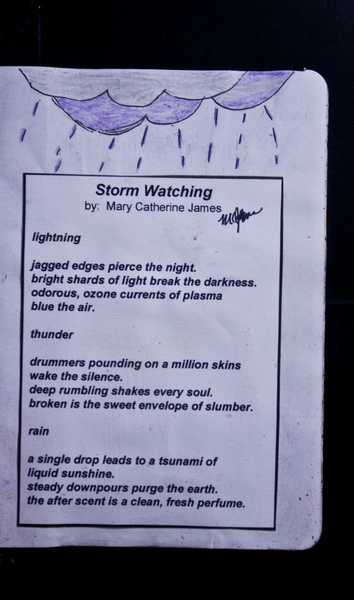 Storm Watching
by: Mary Catherine James
MCJames
lightning
jagged edges pierce the night.
bright shards of light break the darkness.
odorous, ozone currents of plasma
blue the air.
thunder
drummers pounding on a million skins
wake the silence.
deep rumbling shakes every soul.
broken is the sweet envelope of slumber.
rain
a single drop leads to a tsunami of
liquid sunshine.
steady downpours purge the earth.
the after scent is a clean, fresh perfume.